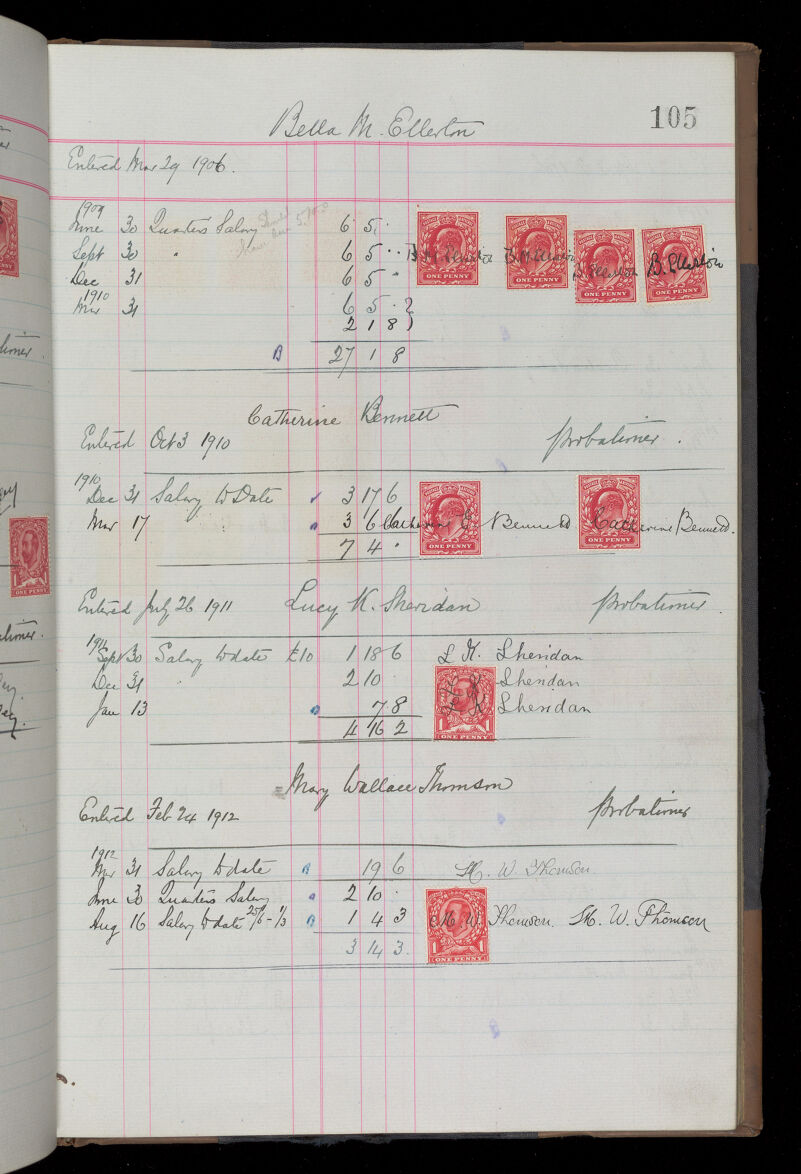 105
Bella M. Ellerton
Entered Mar 29 1906.
1909
June 30 Quarters Salary 6 5 ·
Sept 30 " 6 5 · · B M Ellerton B. M. Ellerton B Ellerton B. Ellerton
Dec 31 6 5 "
1910
Mar 31 6 5 ·
2 1 8
27 1 8
ONE PENNY ONE PENNY ONE PENNY ONE PENNY
Catherine Bennett
Entered Oct 3 1910 Probationer.
1910
Dec 31 Salary to Date 3 17 6
Mar 17 3 6 6 Catherine G. Bennett Catherine Bennett.
7 4 ·
ONE PENNY ONE PENNY
Entered July 26 1911 Lucy K. Sheridan Probationer.
1911
Sept 30 Salary to date £10 1 18 6 L K. Sheridan
Dec 31 2 10 · L K Sheridan
Jan 13 7 8 L K Sheridan
4 16 2
1 ONE PENNY 1
Mary Wallace Thomson
Entered Feb 24 1912 Probationer
1912
Mar 31 Salary to date 19 6 M. W. Thomson.
June 30 Quarters Salary 2 10 ·
Aug 16 Salary to date 1 4 3 M. W. Thomson. M. W. Thomson
3 14 3.
1 ONE PENNY 1
1 ONE PENNY 1